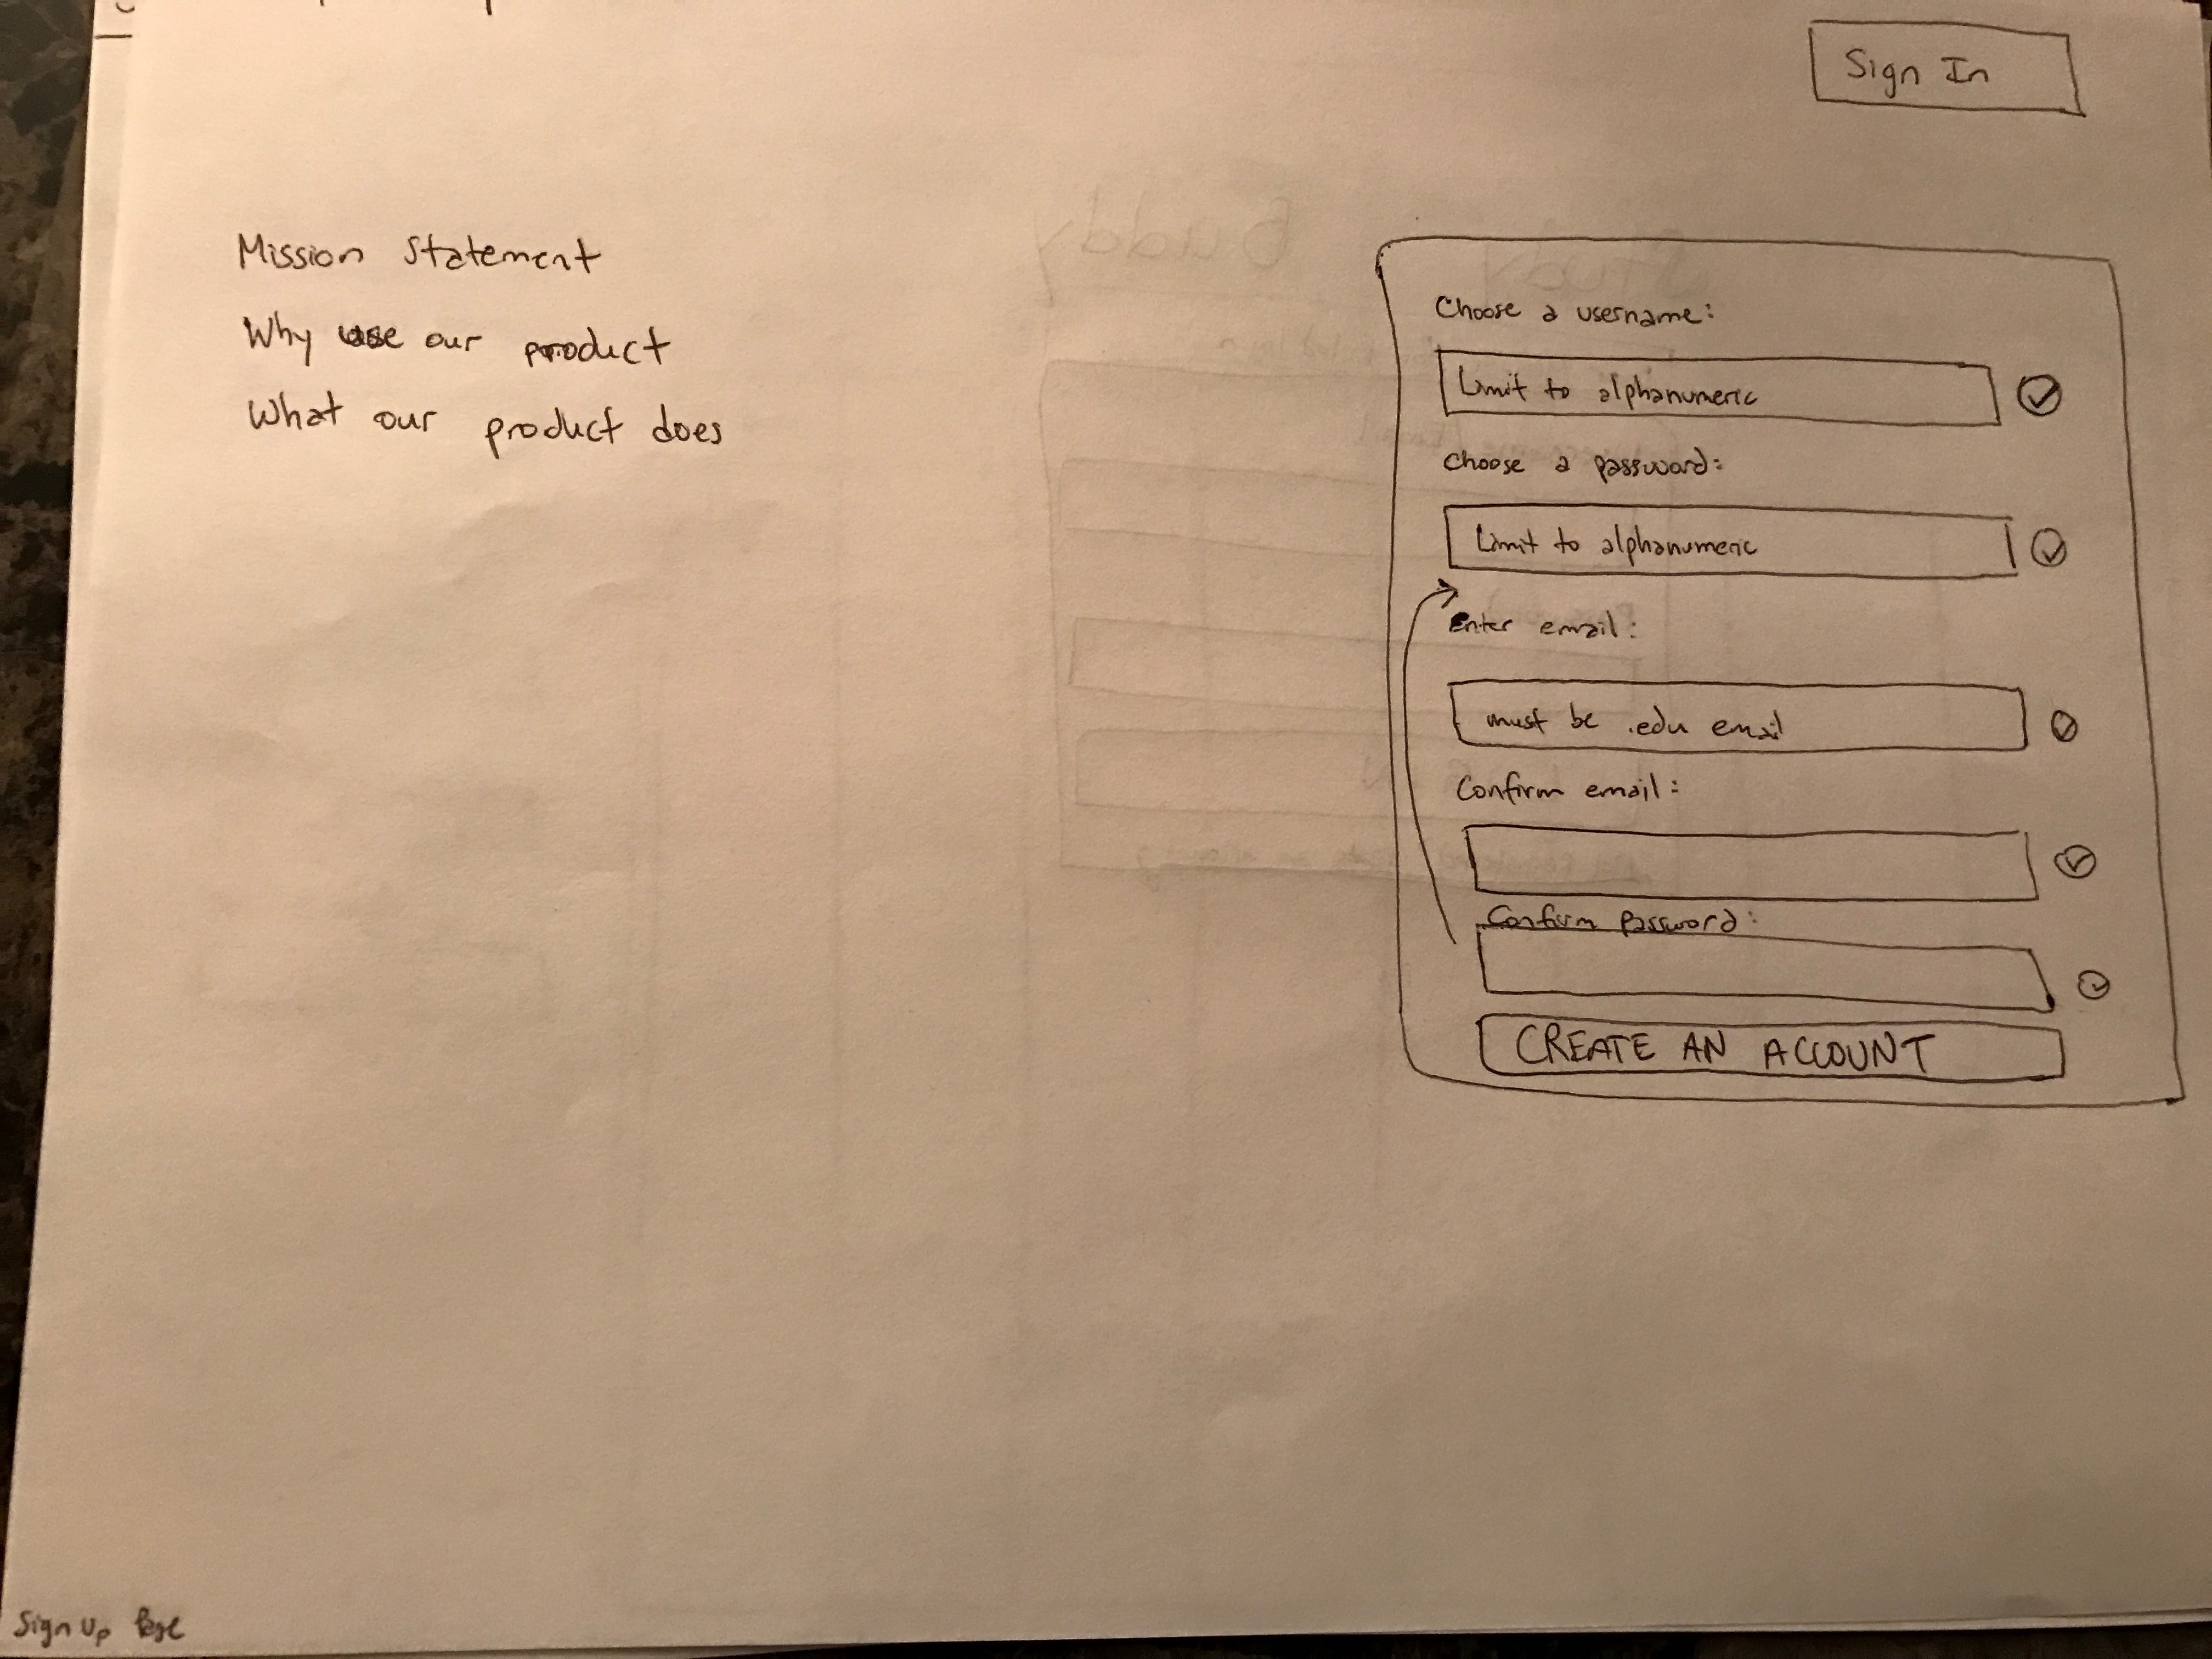 Sign In
Mission Statement
Why use our product
What our product does
Choose a username:
Limit to alphanumeric
Choose a password:
Limit to alphanumeric
Enter email:
must be .edu email
Confirm email:
Confirm Password:
CREATE AN ACCOUNT
Sign Up Page